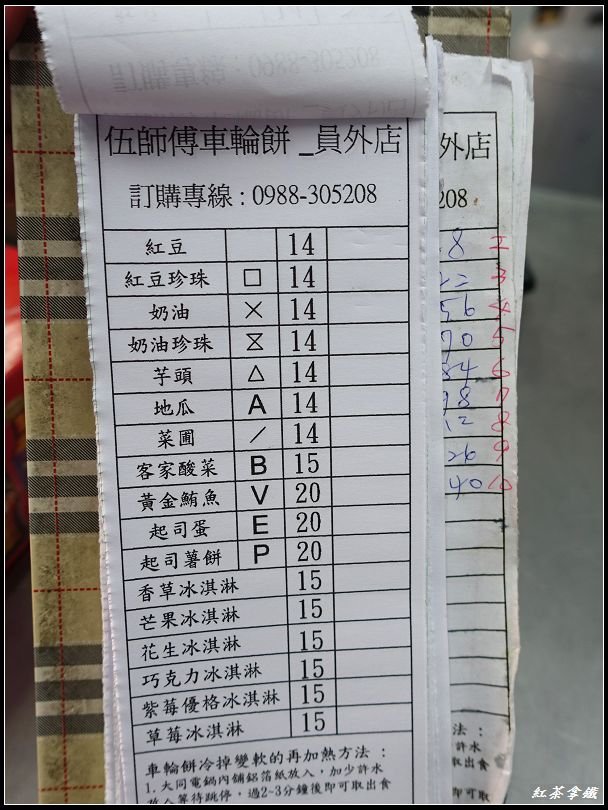 伍師傅車輪餅_員外店
訂購專線：0988-305208
紅豆 14
紅豆珍珠 □ 14
奶油 × 14
奶油珍珠 ⧖ 14
芋頭 △ 14
地瓜 A 14
菜圃 ／ 14
客家酸菜 B 15
黃金鮪魚 V 20
起司蛋 E 20
起司薯餅 P 20
香草冰淇淋 15
芒果冰淇淋 15
花生冰淇淋 15
巧克力冰淇淋 15
紫莓優格冰淇淋 15
草莓冰淇淋 15
車輪餅冷掉變軟的再加熱方法：
1. 大同電鍋內鋪鋁箔紙放入，加少許水
放入等待跳停，過2~3分鐘後即可取出食
外店
208
8 2
3
56 4
70 5
84 6
98 7
12 8
26 9
40 10
法：
許水
即可取出食
紅茶拿鐵